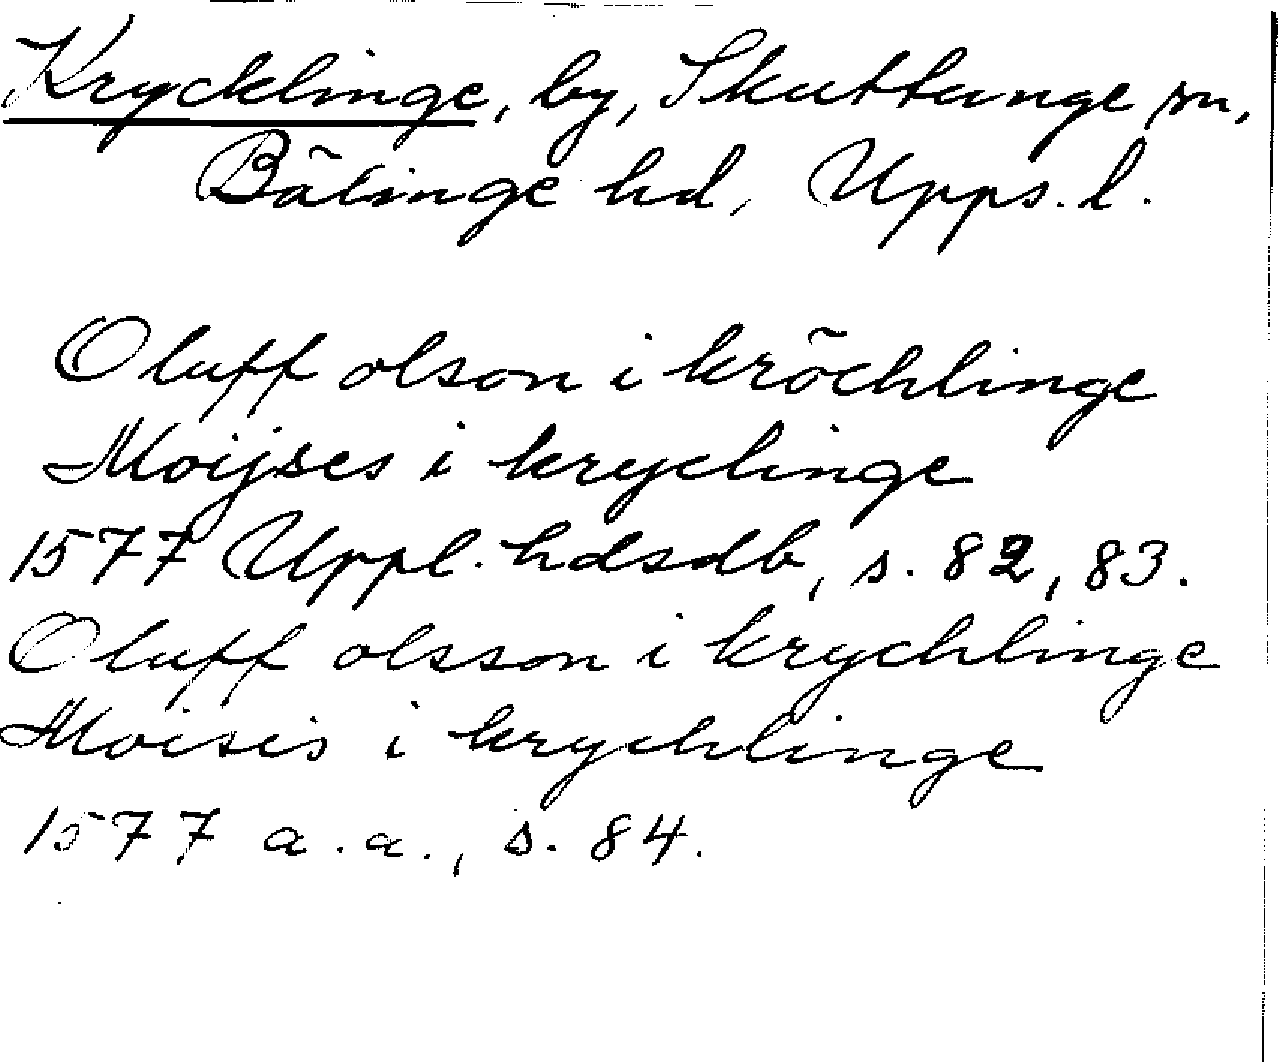 Krycklinge, by, Skuttunge sn,
Bälinge hd, Upps. l.
Oluff olson i kröchlinge
Moijses i kryclinge
1577 Uppl. hdsdb, s. 82, 83.
Oluff olsson i krychlinge
Moisis i krychlinge
1577 a. a., s. 84.